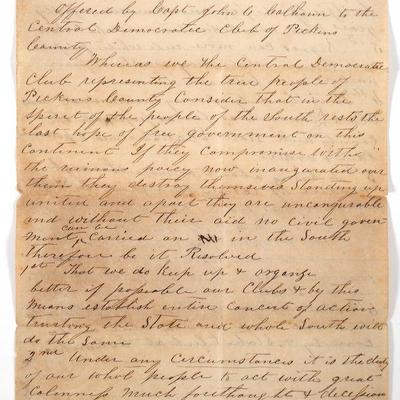 Offered by Capt John C Calhoun to the
Central Democratic Club of Pickens
County
Whereas we the Central Democratic
Club representing the true people of
Pickens County Consider that in the
Spirit of the people of the South rests the
last hope of free government on this
Continent If they Compromise with
the ruinous policy now inaugurated over
them they destroy themselves Standing up
united and apart they are unconquerable
and without their aid no Civil govern
can be
ment Carried on in the South
therefore be it Resolved
1st That we do Keep up & organize
better if possible our Clubs & by this
Means establish entire Concert of action
trusting the State and whole South will
do the Same
2nd Under any Circumstances it is the duty
of our whole people to act with great
Calmness Much forethought & decission